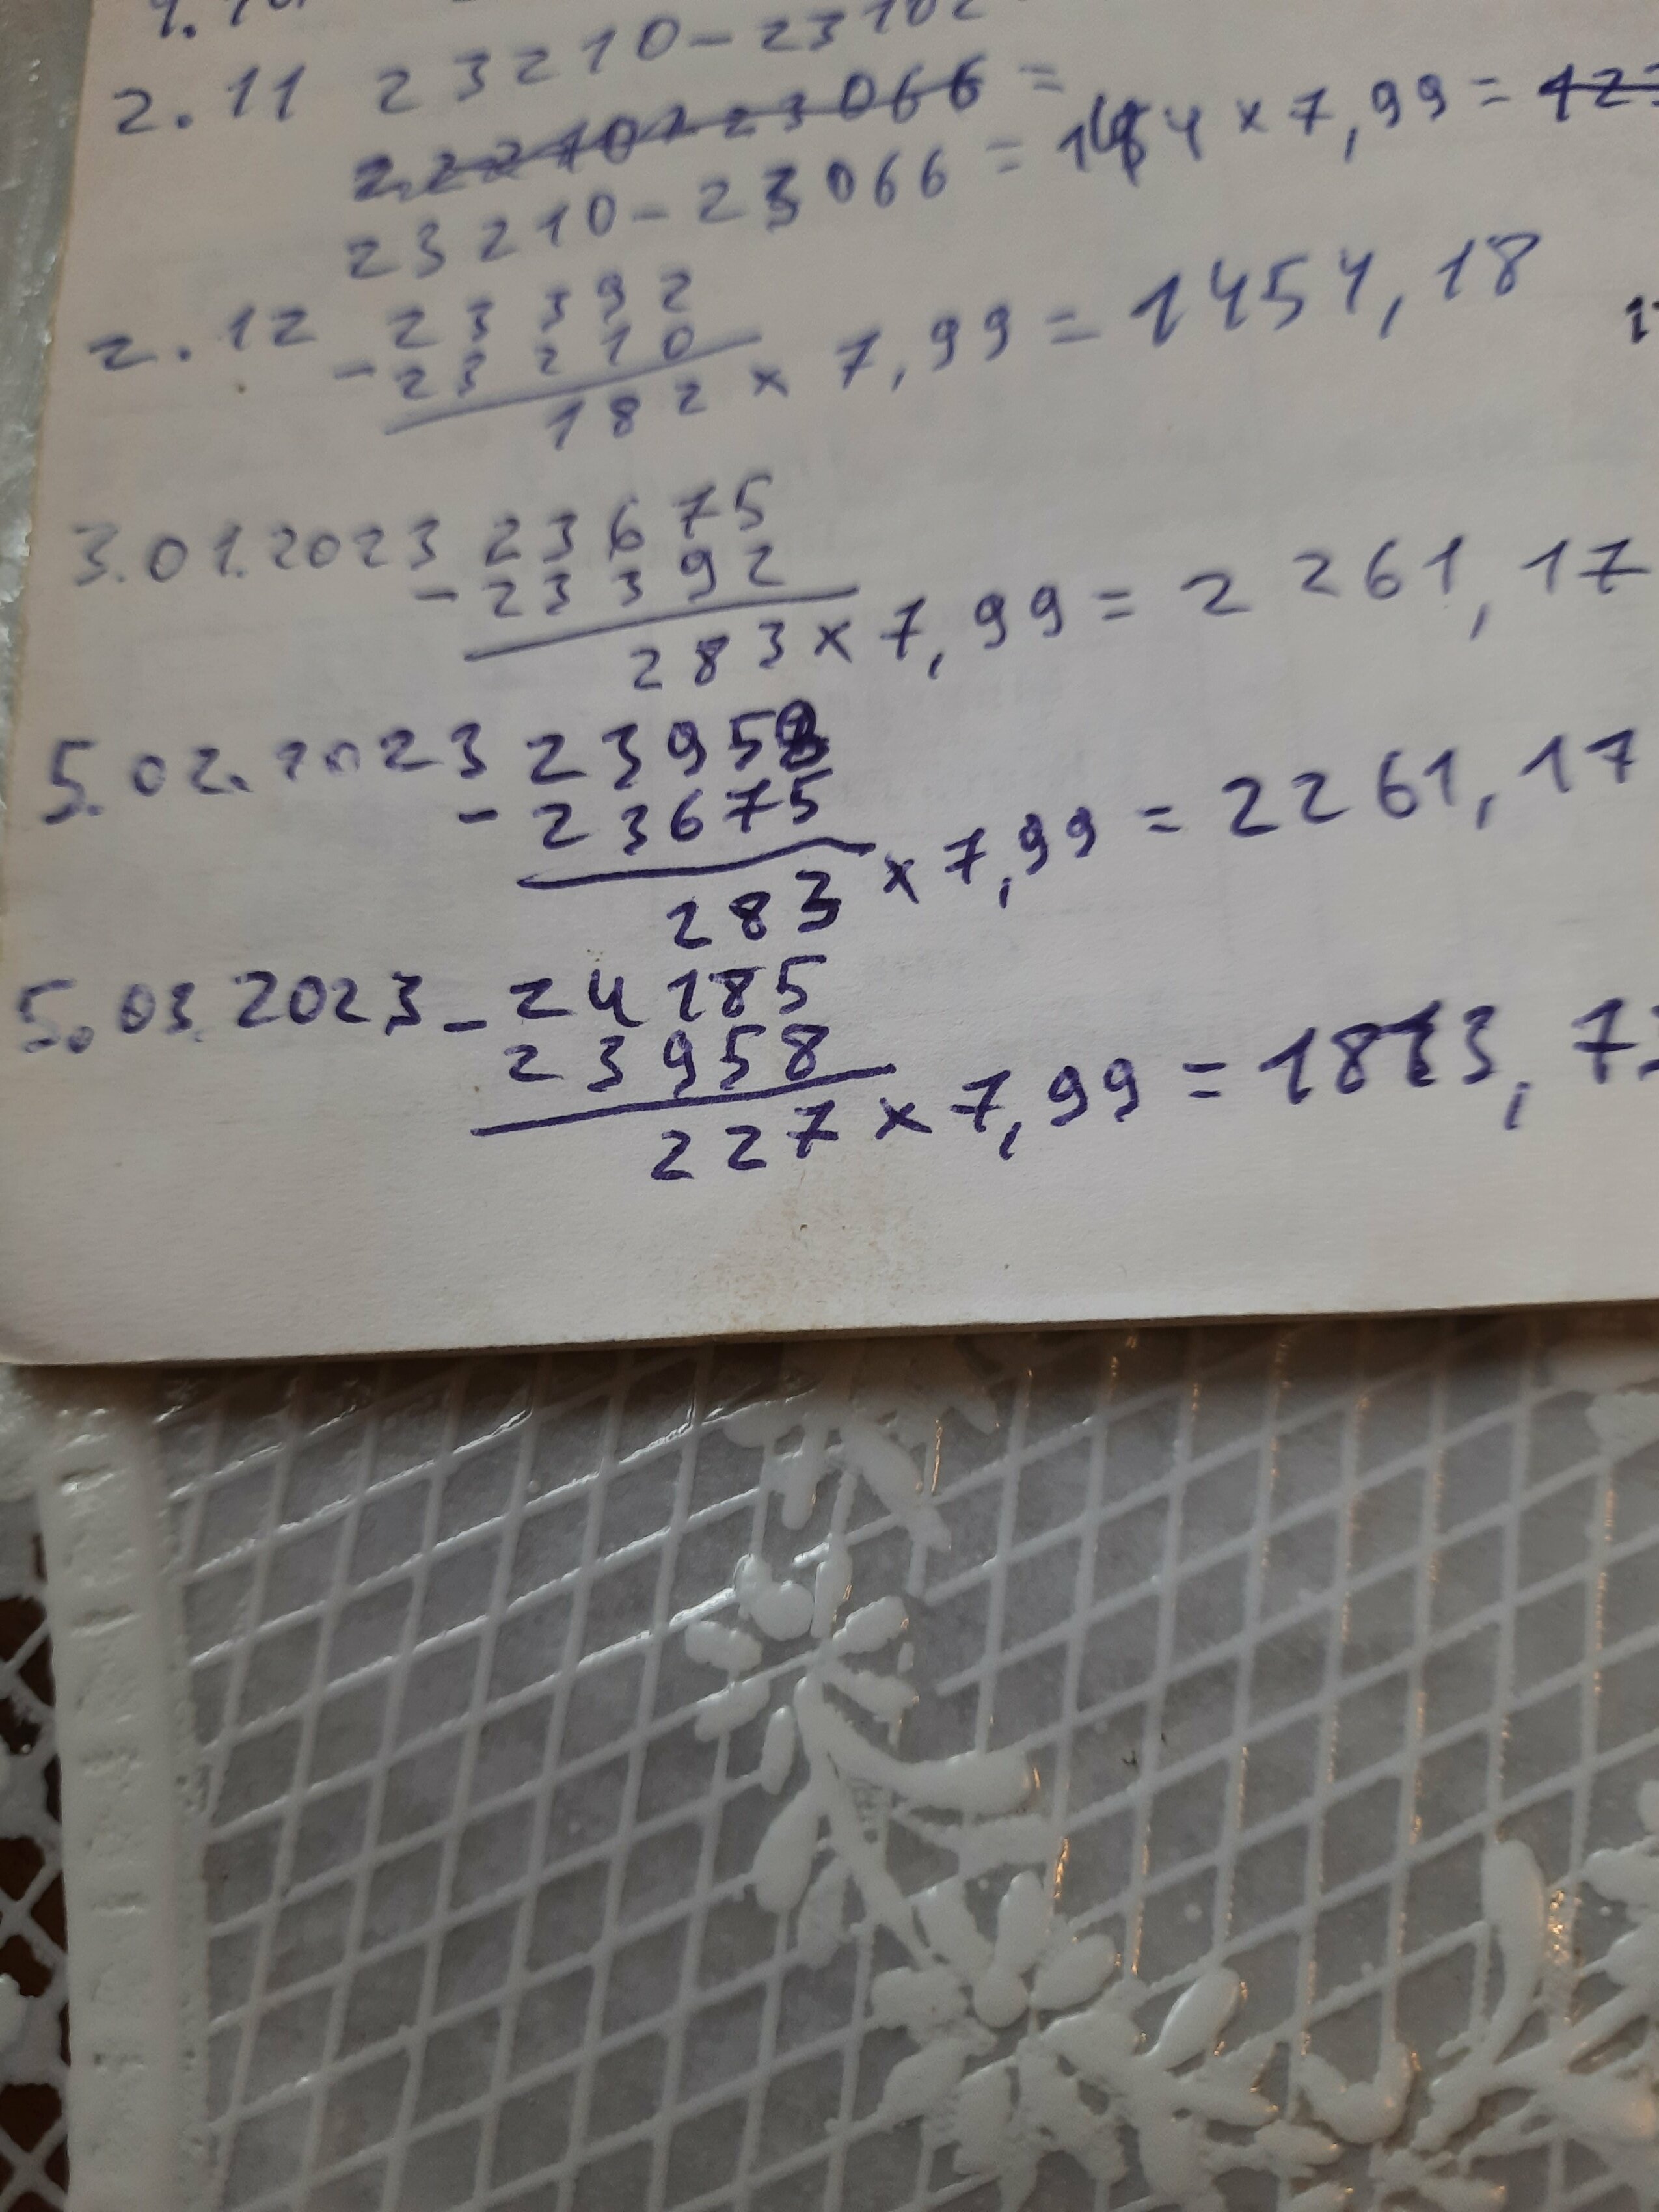 2.11 23210-23102
23210-23066 = 144 x 7,99 =
2.12 23392
- 23210
182 x 7,99 = 1454,18
3.01.2023 23675
- 23392
283 x 7,99 = 2261,17
5.02.2023 23958
- 23675
283 x 7,99 = 2261,17
5.03.2023 - 24185
23958
227 x 7,99 = 1813,7